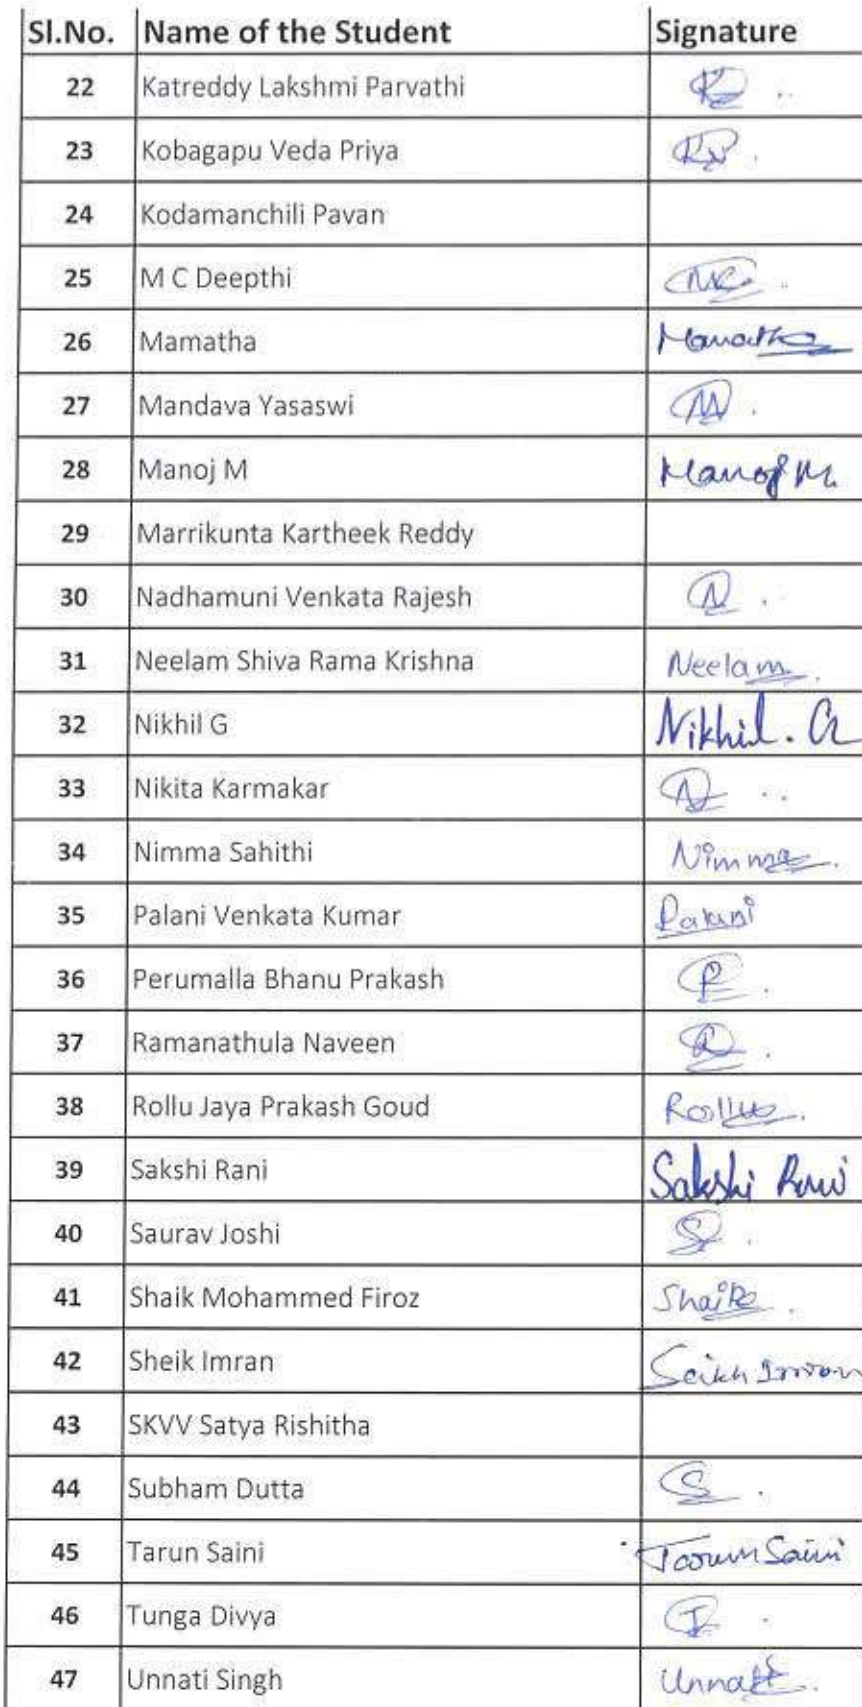 Sl.No. Name of the Student Signature
22 Katreddy Lakshmi Parvathi K
23 Kobagapu Veda Priya KV
24 Kodamanchili Pavan
25 M C Deepthi MC
26 Mamatha Mamatha
27 Mandava Yasaswi M
28 Manoj M Manoj M.
29 Marrikunta Kartheek Reddy
30 Nadhamuni Venkata Rajesh N
31 Neelam Shiva Rama Krishna Neelam.
32 Nikhil G Nikhil. G
33 Nikita Karmakar N
34 Nimma Sahithi Nimma.
35 Palani Venkata Kumar Palani
36 Perumalla Bhanu Prakash P
37 Ramanathula Naveen R
38 Rollu Jaya Prakash Goud Rollu.
39 Sakshi Rani Sakshi Rani
40 Saurav Joshi S
41 Shaik Mohammed Firoz Shaik
42 Sheik Imran Seikh Imran
43 SKVV Satya Rishitha
44 Subham Dutta S
45 Tarun Saini Tarun Saini
46 Tunga Divya T
47 Unnati Singh Unnati.